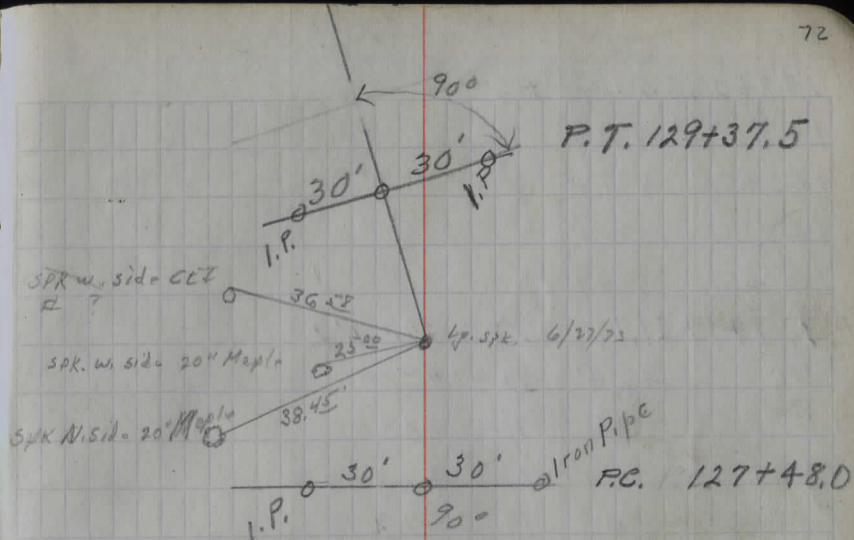 72
90°
P.T. 129+37.5
30'
30'
I.P.
I.P.
SPK w. side CEI
?
36.58
Lg. spk. 6/27/73
25.00
SPK. w. side 20" Maple
38.45'
SPK N. Side 20" Maple
30'
30'
Iron Pipe
P.C. 127+48.0
I.P.
90°